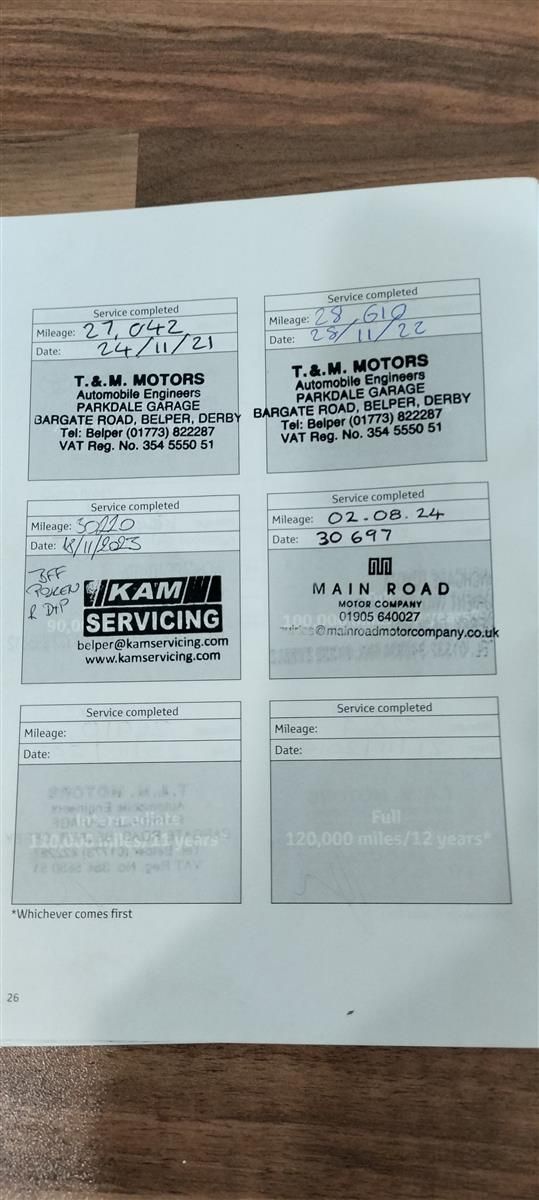 Service completed
Mileage: 27,042
Date: 24/11/21
T.&.M. MOTORS
Automobile Engineers
PARKDALE GARAGE
BARGATE ROAD, BELPER, DERBY
Tel: Belper (01773) 822287
VAT Reg. No. 354 5550 51
Service completed
Mileage: 28,610
Date: 28/11/22
T.&.M. MOTORS
Automobile Engineers
PARKDALE GARAGE
BARGATE ROAD, BELPER, DERBY
Tel: Belper (01773) 822287
VAT Reg. No. 354 5550 51
Service completed
Mileage: 30220
Date: 18/11/2023
KAM
SERVICING
belper@kamservicing.com
www.kamservicing.com
Service completed
Mileage: 02.08.24
Date: 30697
MAIN ROAD
MOTOR COMPANY
01905 640027
@mainroadmotorcompany.co.uk
Service completed
Mileage:
Date:
Intermediate
110,000 miles/11 years
Service completed
Mileage:
Date:
Full
120,000 miles/12 years*
*Whichever comes first
26